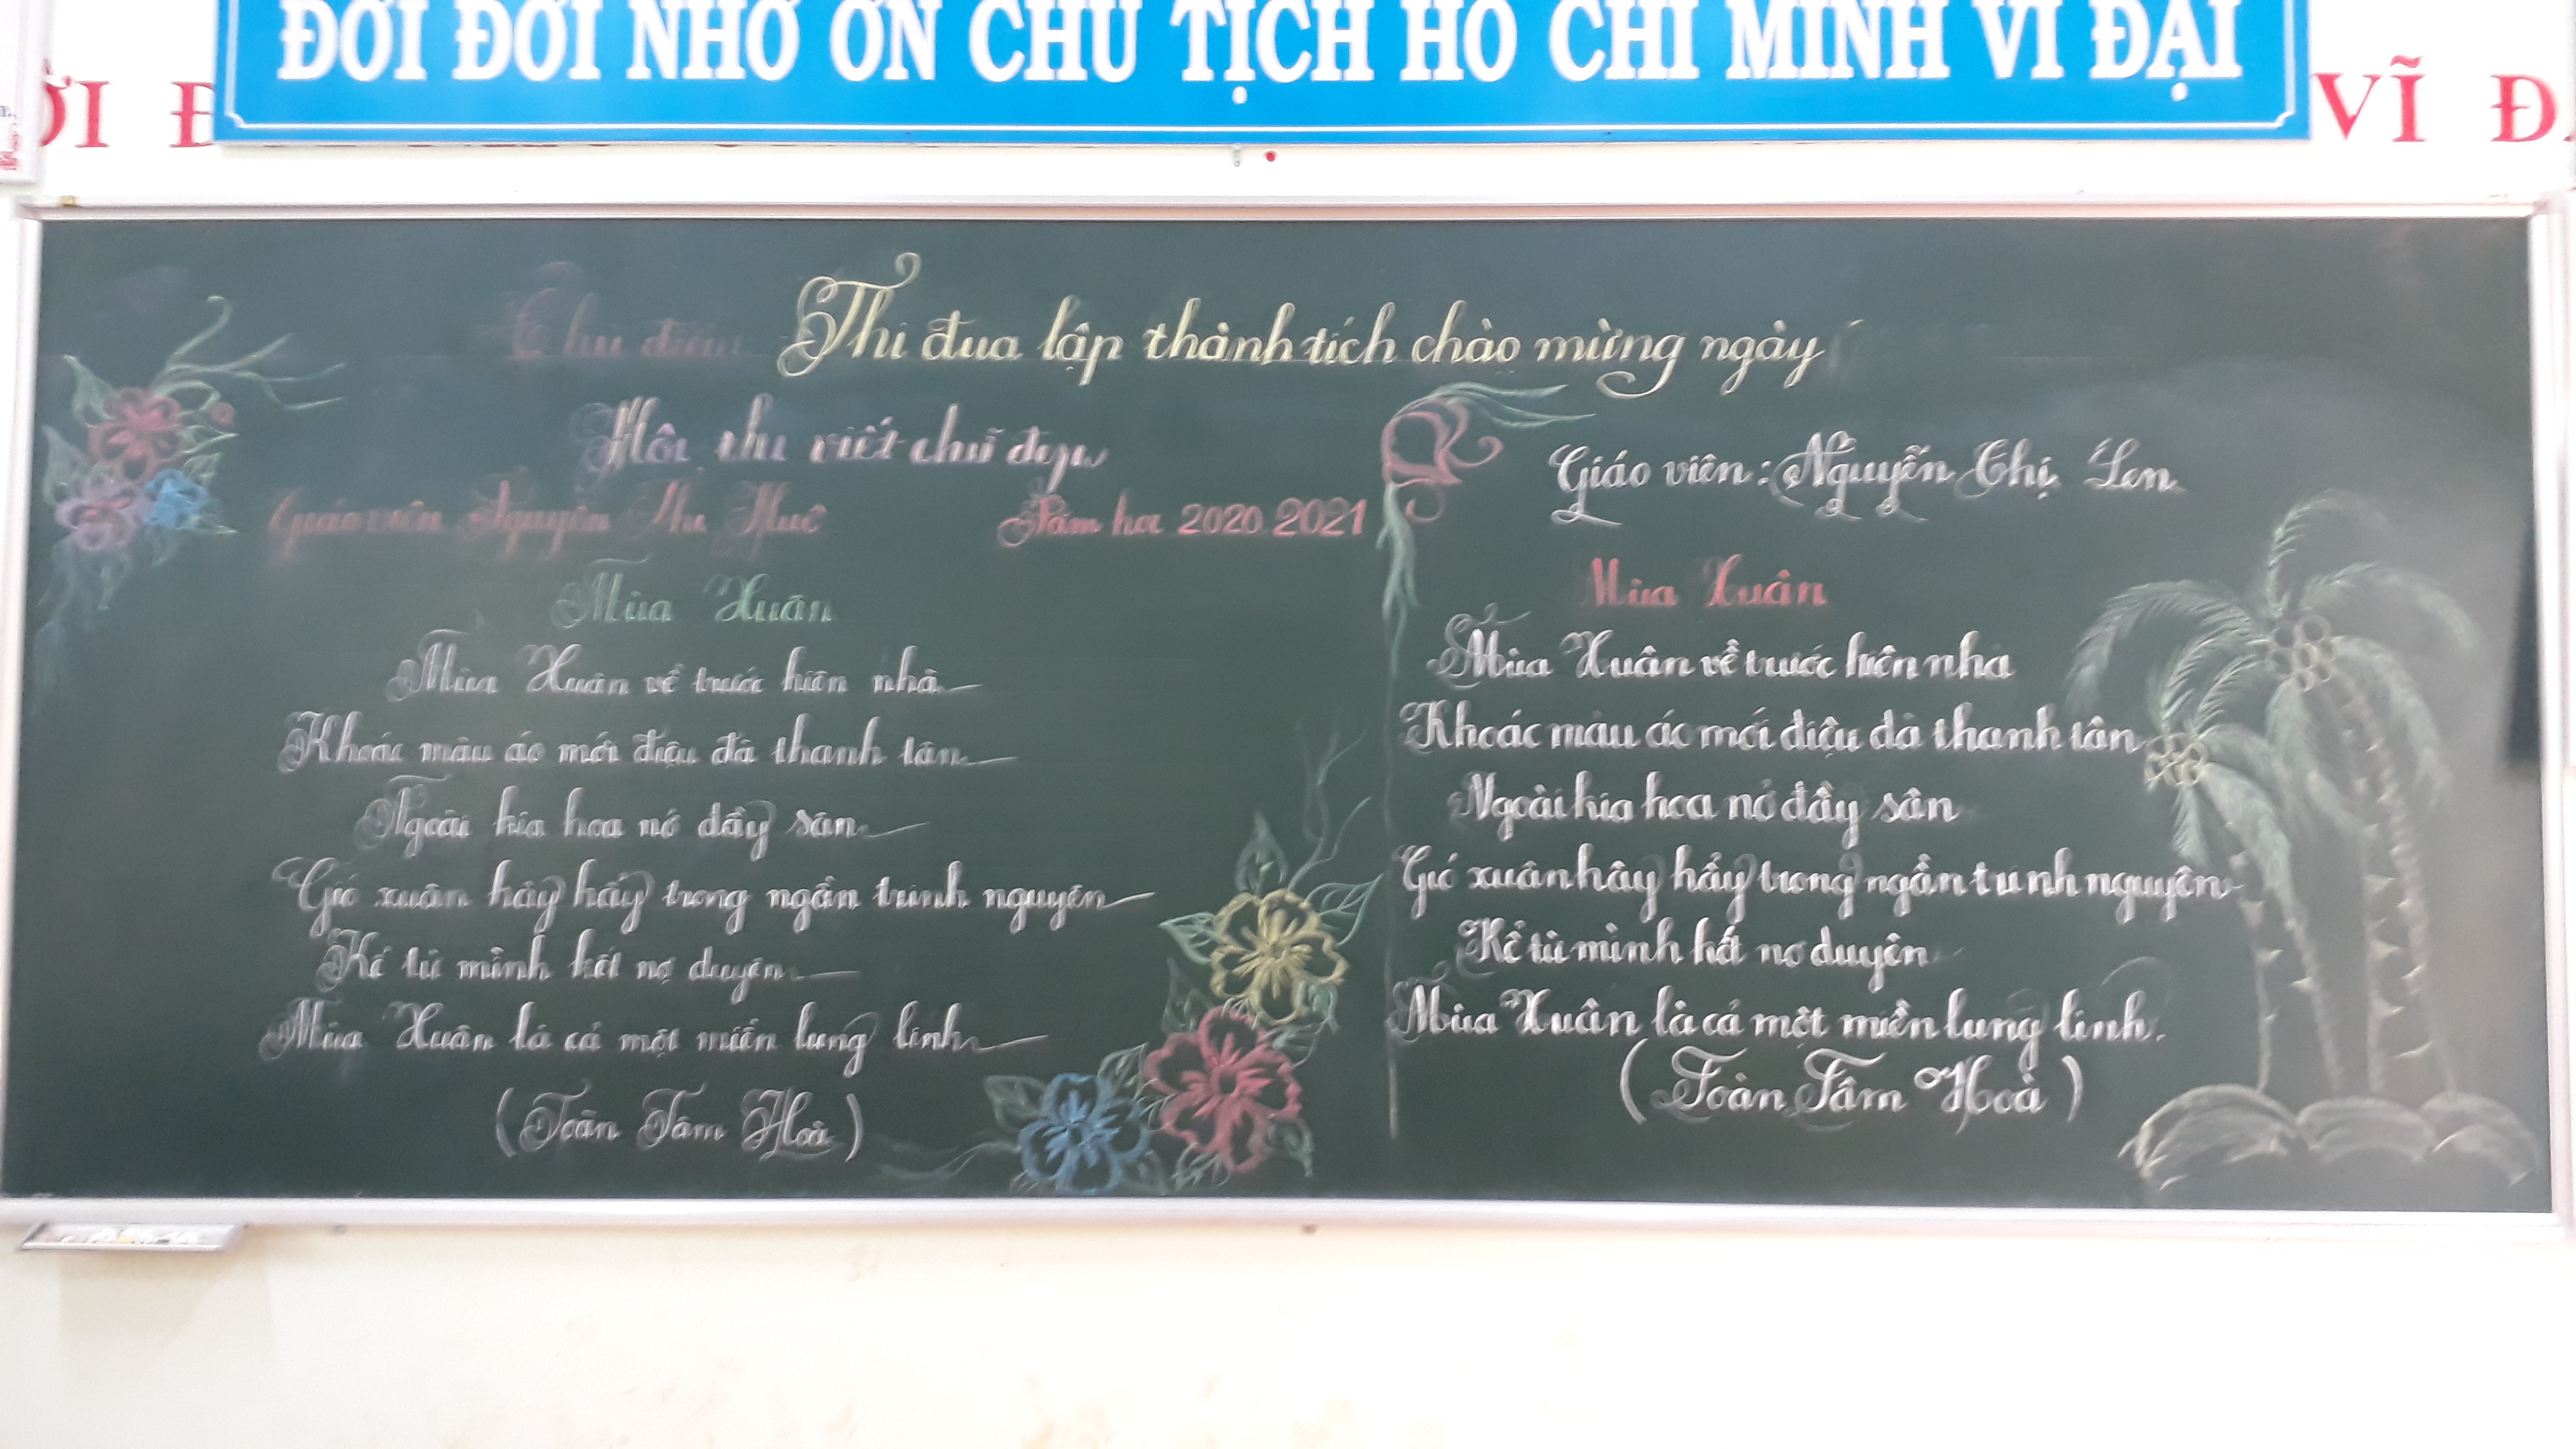 ĐỜI ĐỜI NHỚ ƠN CHỦ TỊCH HỒ CHÍ MINH VĨ ĐẠI
VĨ
Thi đua lập thành tích chào mừng ngày
Hội thi viết chữ đẹp
Giáo viên Nguyễn Thị Huê
Năm học 2020 2021
Mùa Xuân
Mùa Xuân về trước hiên nhà
Khoác màu áo mới điệu đà thanh tân
Ngoài kia hoa nở đầy sân
Gió xuân hây hẩy trong ngần trinh nguyên
Kể từ mình kết nợ duyên
Mùa Xuân là cả một miền lung linh
(Toàn Tâm Hoà)
Giáo viên: Nguyễn Thị Len
Mùa Xuân
Mùa Xuân về trước hiên nhà
Khoác màu áo mới điệu đà thanh tân
Ngoài kia hoa nở đầy sân
Gió xuân hây hẩy trong ngần trinh nguyên
Kể từ mình kết nợ duyên
Mùa Xuân là cả một miền lung linh.
(Toàn Tâm Hoà)